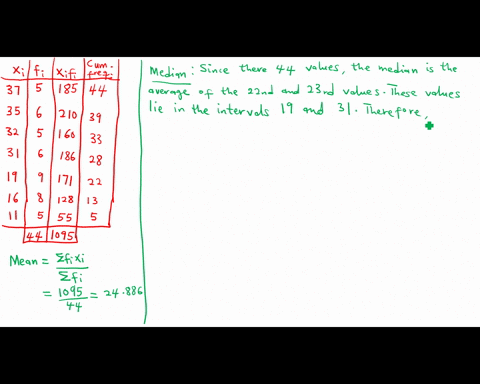 xi fi xifi Cum. freq.
37 5 185 44
35 6 210 39
32 5 160 33
31 6 186 28
19 9 171 22
16 8 128 13
11 5 55 5
44 1095
Mean = Σfixi / Σfi
= 1095 / 44 = 24.886
Median: Since there 44 values, the median is the
average of the 22nd and 23rd values. These values
lie in the intervals 19 and 31. Therefore,